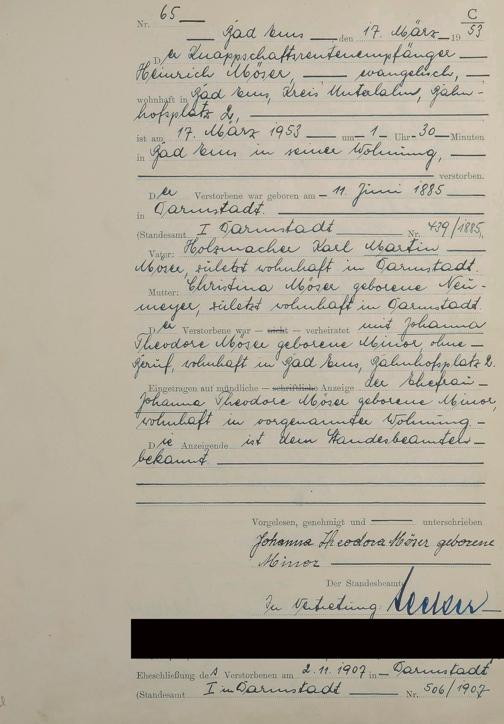 C
Nr. 65
Bad Ems, den 17. März 1953
Der Knappschaftsrentenempfänger
Heinrich Möser, evangelisch,
wohnhaft in Bad Ems, Kreis Unterlahn, Bahn-
hofsplatz 2,
ist am 17. März 1953 um 1 Uhr 30 Minuten
in Bad Ems in seiner Wohnung,
verstorben.
Der Verstorbene war geboren am 11. Juni 1885
in Darmstadt.
(Standesamt I Darmstadt Nr. 439/1885)
Vater: Holzmacher Karl Martin
Möser, zuletzt wohnhaft in Darmstadt.
Mutter: Christina Möser geborene Neu-
meyer, zuletzt wohnhaft in Darmstadt.
Der Verstorbene war — nicht — verheiratet mit Johanna
Theodore Möser geborene Minor ohne
Beruf, wohnhaft in Bad Ems, Bahnhofsplatz 2.
Eingetragen auf mündliche — schriftliche Anzeige der Ehefrau
Johanna Theodore Möser geborene Minor,
wohnhaft in vorgenannter Wohnung.
Die Anzeigende ist dem Standesbeamten
bekannt
Vorgelesen, genehmigt und unterschrieben
Johanna Theodora Möser geborene
Minor
Der Standesbeamte
In Vertretung:
Eheschließung des Verstorbenen am 2.11.1907 in Darmstadt
(Standesamt I in Darmstadt Nr. 506/1907)